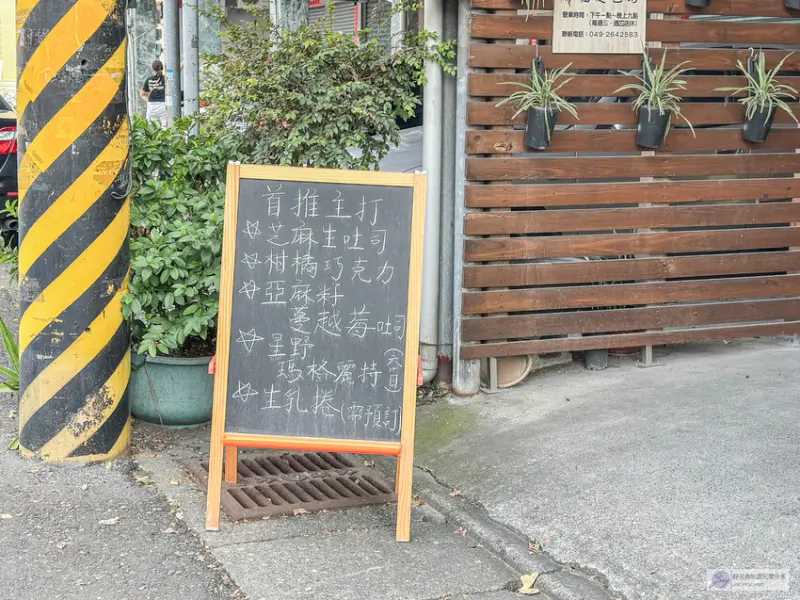 營業時間：下午一點~晚上九點
（每週三、週四店休）
聯絡電話：049-2642583
首推主打
☆芝麻生吐司
☆柑橘巧克力
☆亞麻籽
蔓越莓吐司
☆星野
瑪格麗特（六日）
☆生乳捲（需預訂）